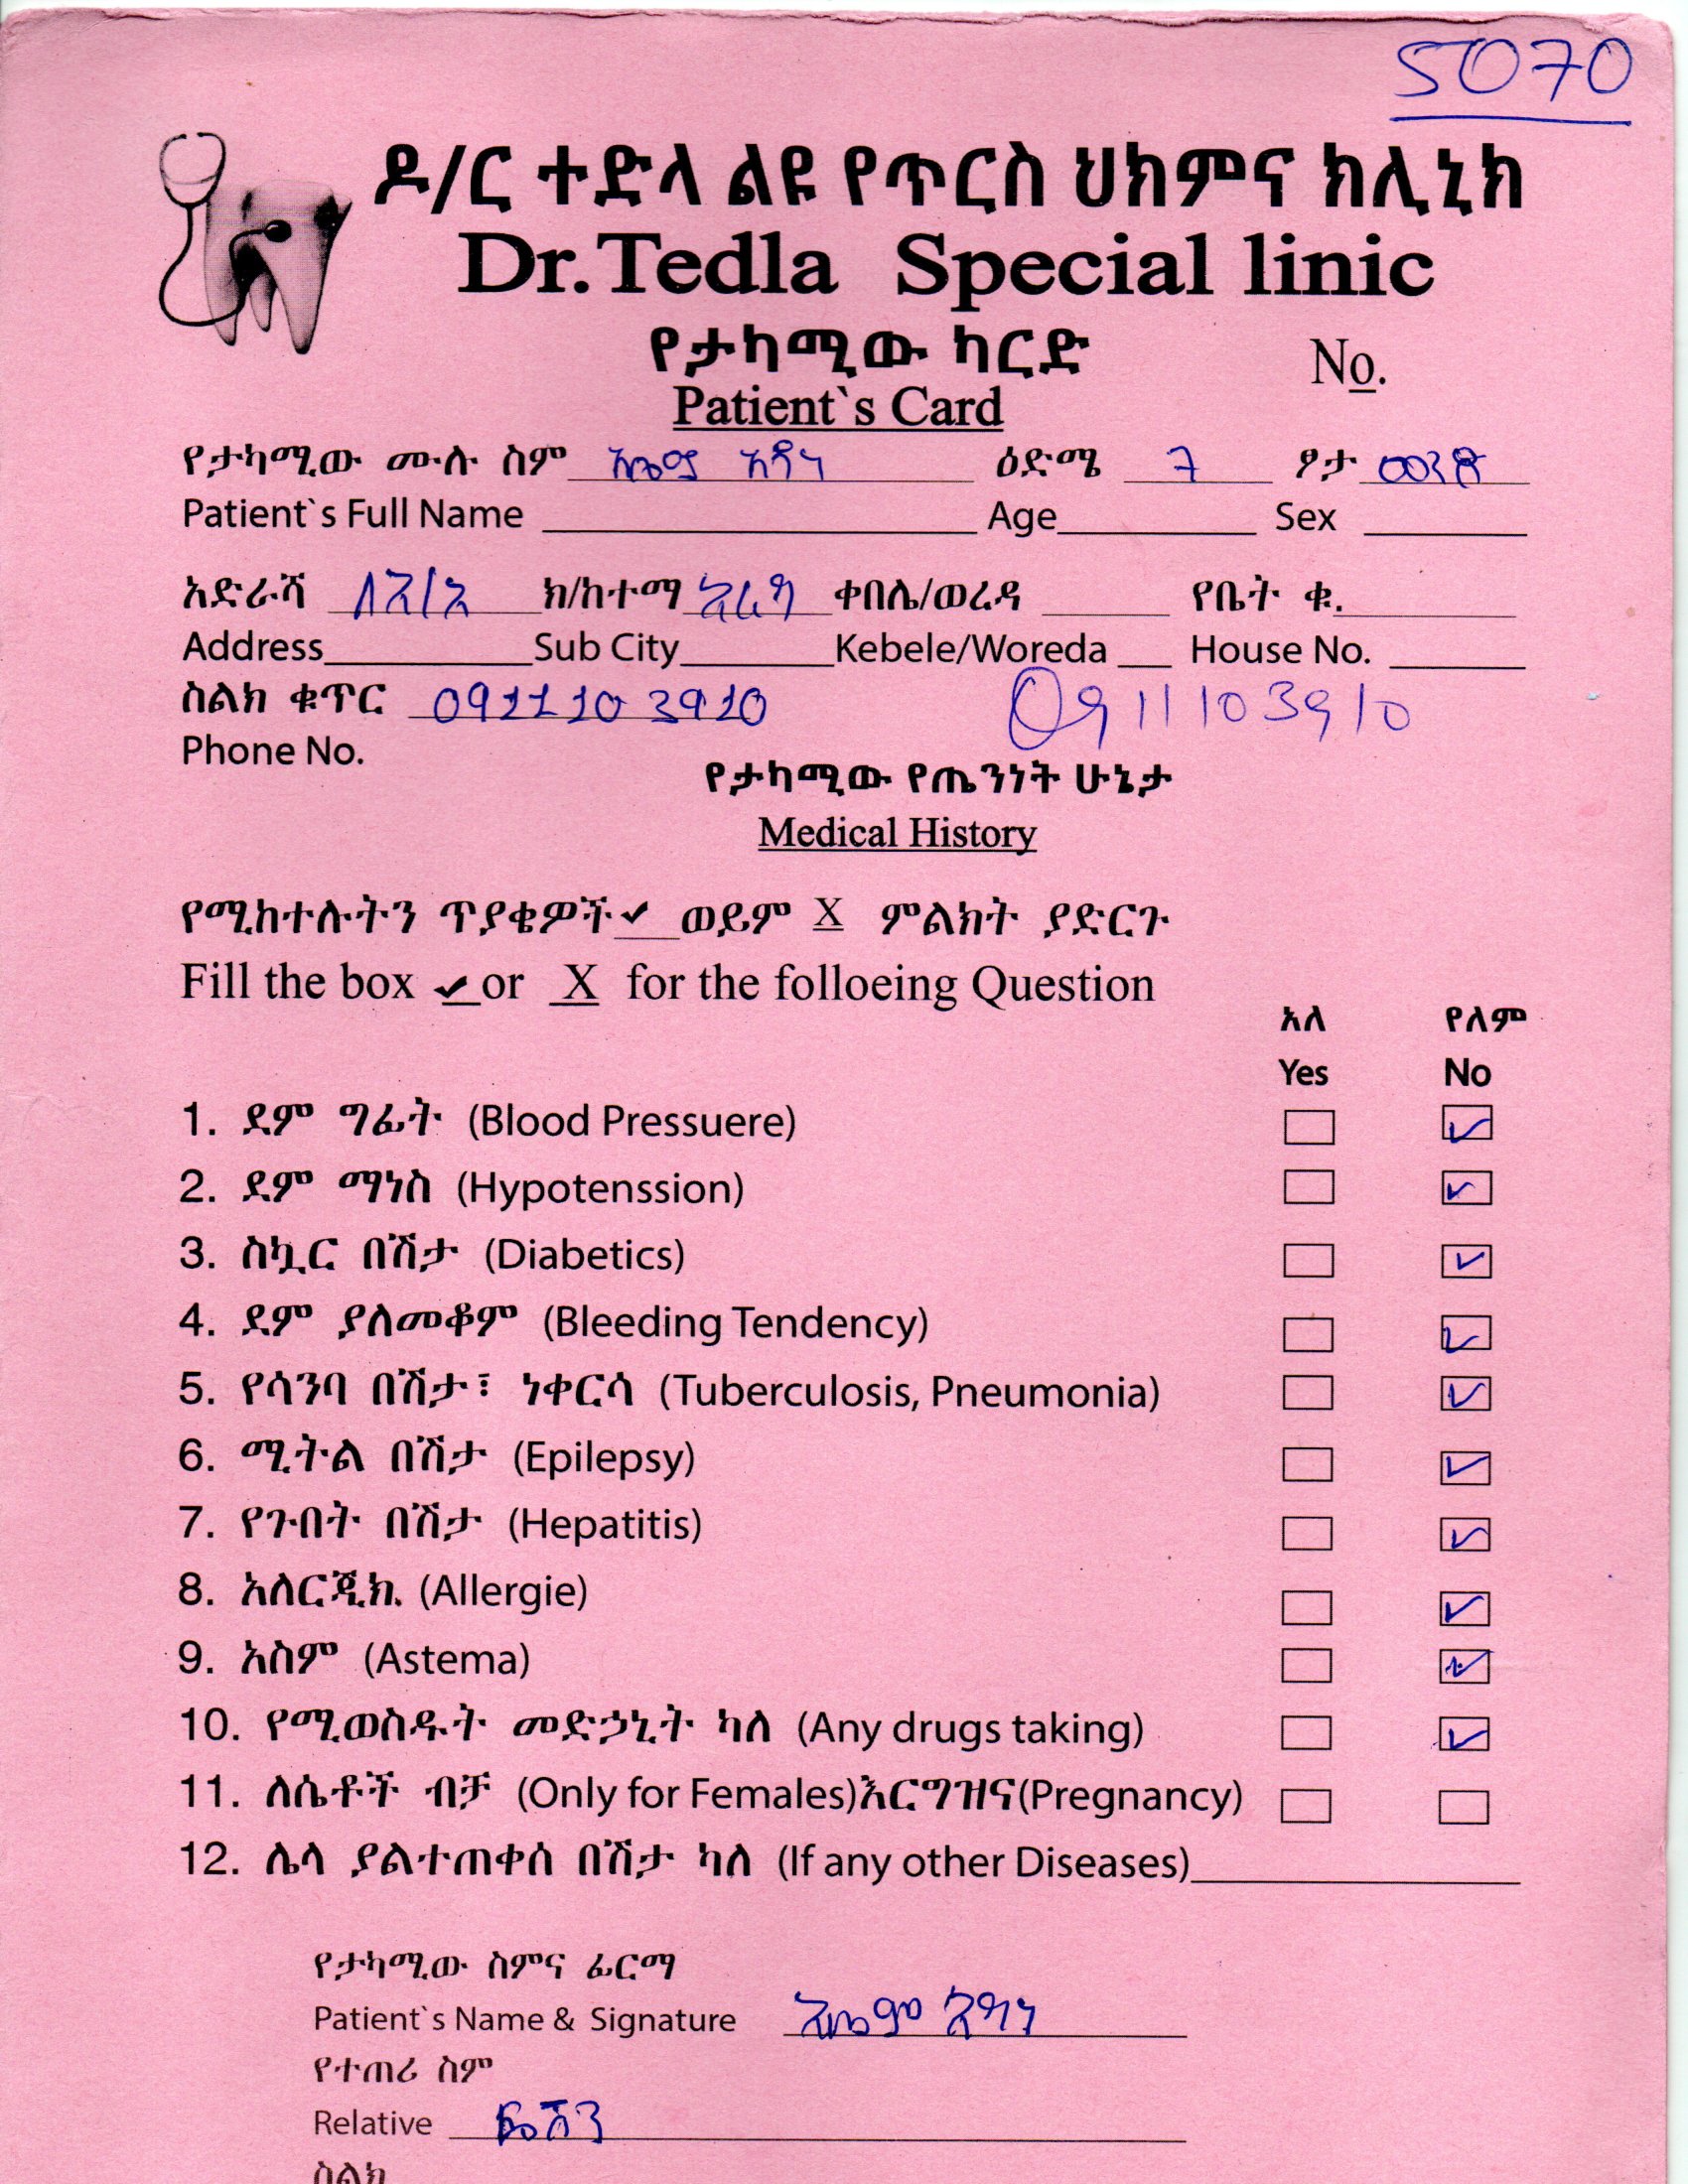 5070
ዶ/ር ተድላ ልዩ የጥርስ ህክምና ክሊኒክ
Dr. Tedla Special linic
የታካሚው ካርድ
No.
Patient`s Card
የታካሚው ሙሉ ስም ዕድሜ 7 ፆታ
Patient`s Full Name Age Sex
አድራሻ ክ/ከተማ ቀበሌ/ወረዳ የቤት ቁ.
Address Sub City Kebele/Woreda House No.
ስልክ ቁጥር 0911103910 0911103910
Phone No.
የታካሚው የጤንነት ሁኔታ
Medical History
የሚከተሉትን ጥያቄዎች ✓ ወይም X ምልክት ያድርጉ
Fill the box ✓ or X for the folloeing Question
አለ የለም
Yes No
1. ደም ግፊት (Blood Pressuere) ✓
2. ደም ማነስ (Hypotenssion) ✓
3. ስኳር በሽታ (Diabetics) ✓
4. ደም ያለመቆም (Bleeding Tendency) ✓
5. የሳንባ በሽታ፣ ነቀርሳ (Tuberculosis, Pneumonia) ✓
6. ሚትል በሽታ (Epilepsy) ✓
7. የጉበት በሽታ (Hepatitis) ✓
8. አለርጂክ (Allergie) ✓
9. አስም (Astema) ✓
10. የሚወስዱት መድኃኒት ካለ (Any drugs taking) ✓
11. ለሴቶች ብቻ (Only for Females)እርግዝና(Pregnancy)
12. ሌላ ያልተጠቀሰ በሽታ ካለ (If any other Diseases)
የታካሚው ስምና ፊርማ
Patient`s Name & Signature
የተጠሪ ስም
Relative
ስልክ